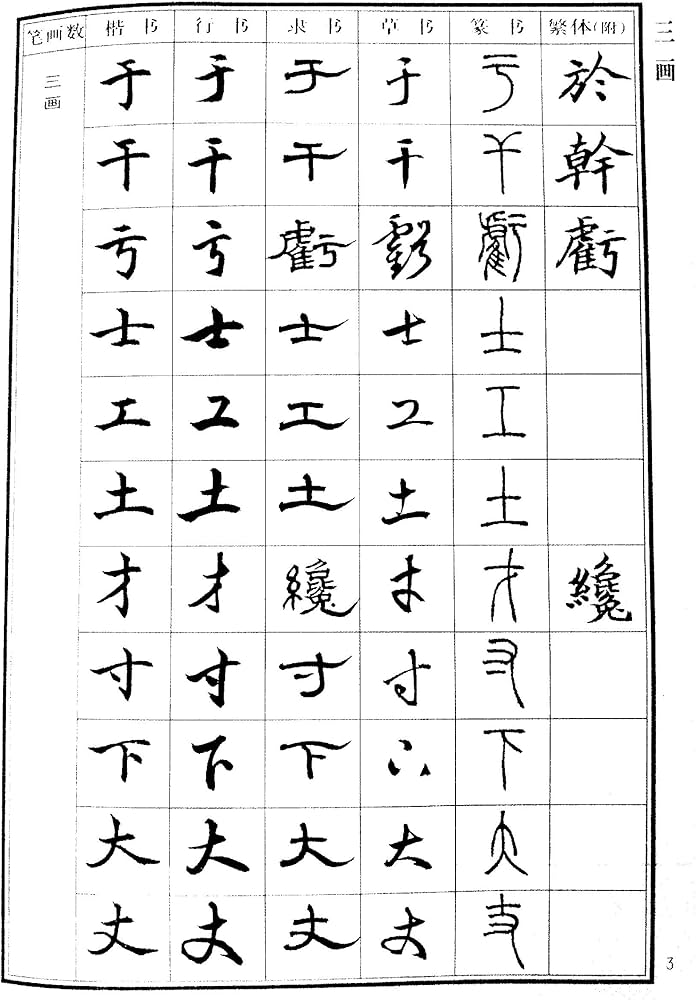 三画
笔画数 楷书 行书 隶书 草书 篆书 繁体(附)
三画 于 于 于 于 于 於
干 干 干 干 干 幹
亏 亏 虧 虧 虧 虧
士 士 士 士 士
工 工 工 工 工
土 土 土 土 土
才 才 纔 才 才 纔
寸 寸 寸 寸 寸
下 下 下 下 下
大 大 大 大 大
丈 丈 丈 丈 丈
3